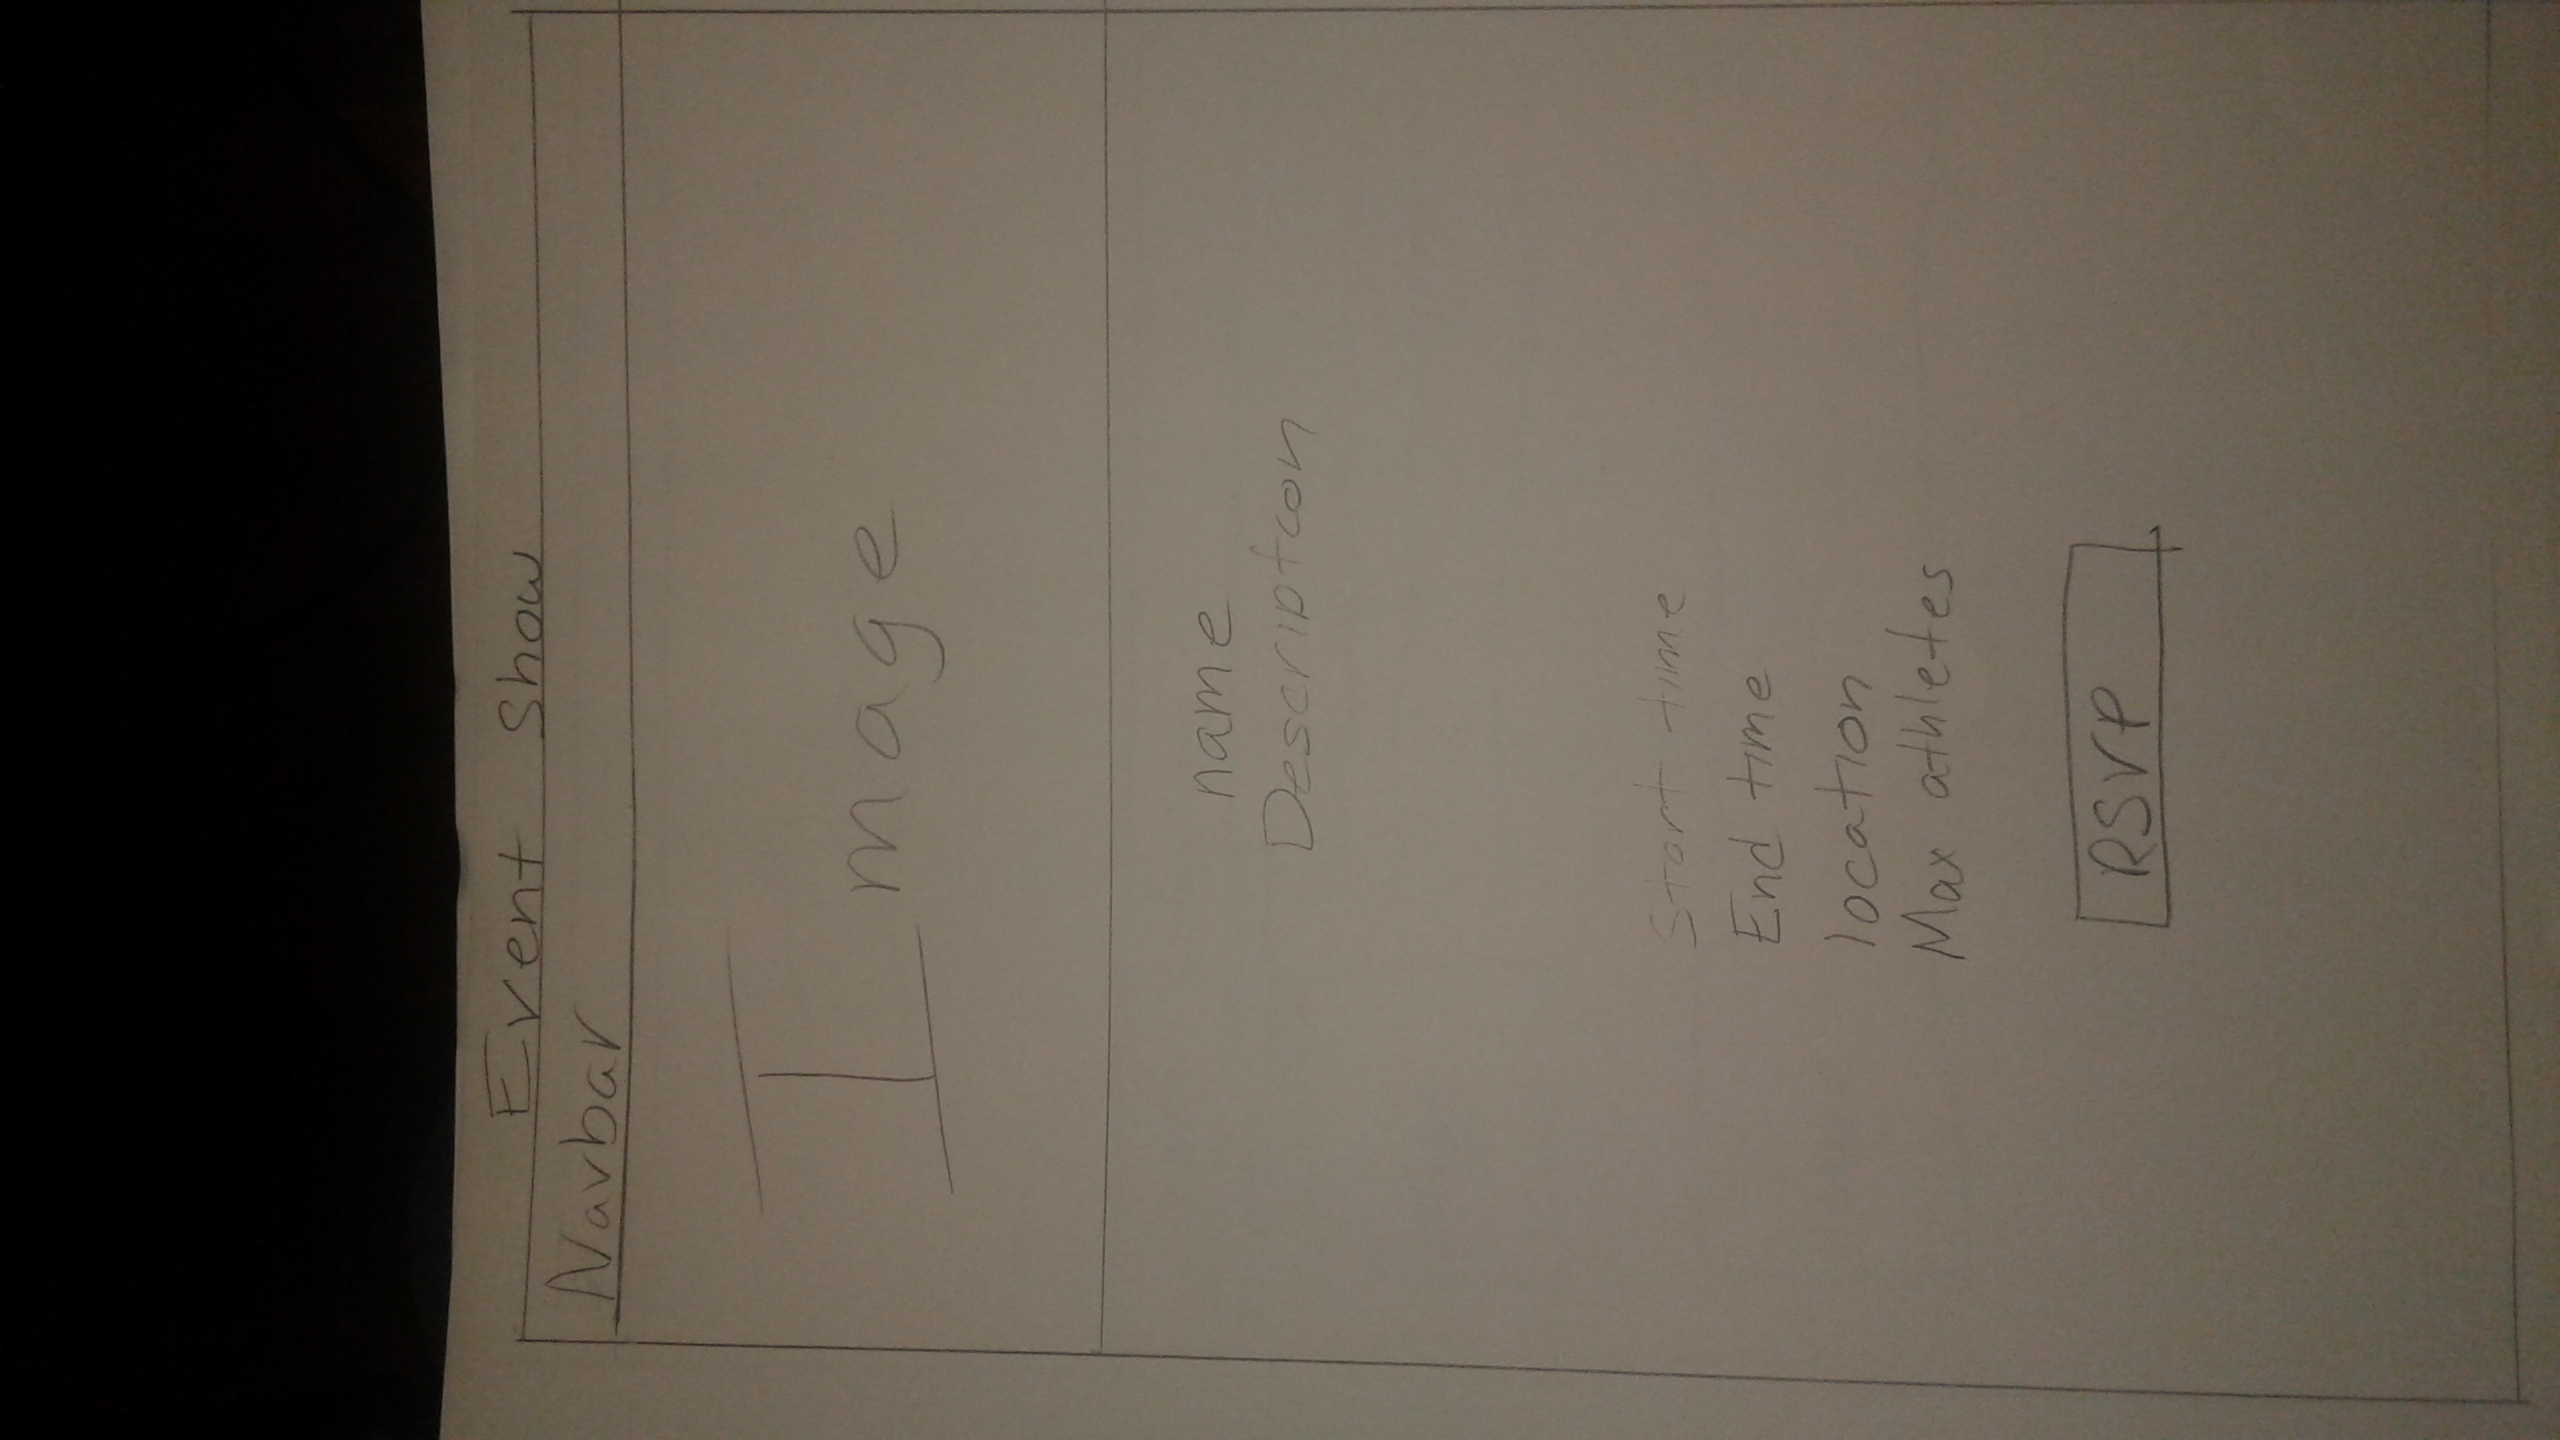 Event Show
Navbar
Image
name
Description
Start time
End time
location
Max athletes
RSVP